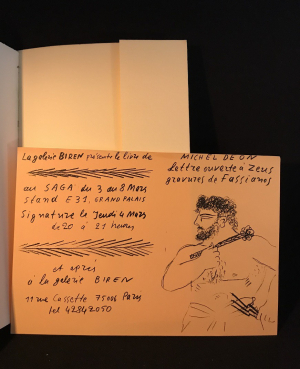 La galerie BIREN présente le livre de
au SAGA du 3 au 8 Mars
stand E31. GRAND PALAIS
Signature le Jeudi 4 Mars
de 20 à 21 heures
et après
à la galerie BIREN
11 rue Cassette 75006 Paris
tel 42842050
MICHEL DEON
Lettre ouverte à Zeus
gravures de Fassianos